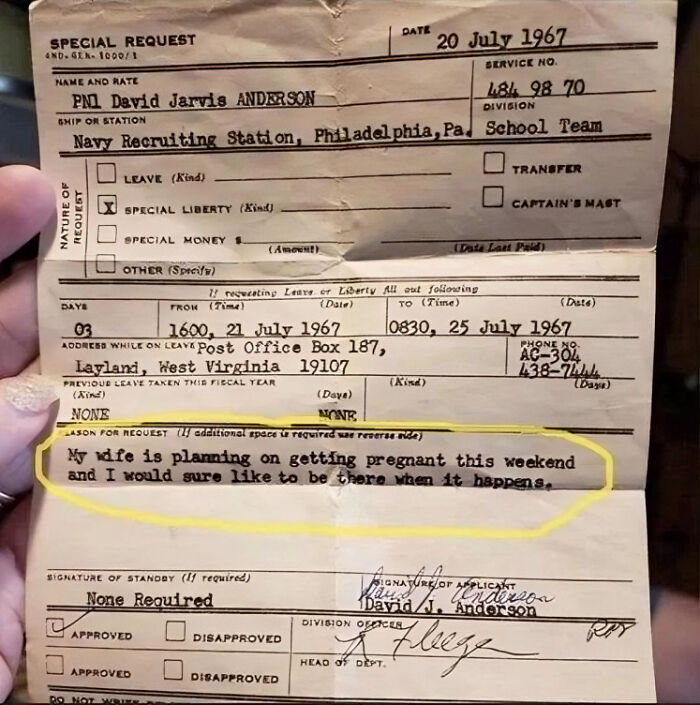 SPECIAL REQUEST
DATE 20 July 1967
NAME AND RATE
SERVICE NO.
PN1 David Jarvis ANDERSON
484 98 70
SHIP OR STATION
DIVISION
Navy Recruiting Station, Philadelphia,Pa. School Team
NATURE OF REQUEST
LEAVE (Kind)
TRANSFER
X SPECIAL LIBERTY (Kind)
CAPTAIN'S MAST
SPECIAL MONEY $
(Amount)
(Date Last Paid)
OTHER (Specify)
If requesting Leave or Liberty fill out following
DAYS FROM (Time) (Date) TO (Time) (Date)
03 1600, 21 July 1967 0830, 25 July 1967
ADDRESS WHILE ON LEAVE Post Office Box 187,
PHONE NO.
AC-304
Layland, West Virginia 19107
438-7444
PREVIOUS LEAVE TAKEN THIS FISCAL YEAR
(Kind) (Days) (Kind) (Days)
NONE NONE
REASON FOR REQUEST (If additional space is required use reverse side)
My wife is planning on getting pregnant this weekend
and I would sure like to be there when it happens.
SIGNATURE OF STANDBY (If required)
SIGNATURE OF APPLICANT
David J. Anderson
None Required
David J. Anderson
APPROVED DISAPPROVED
DIVISION OFFICER
APPROVED DISAPPROVED
HEAD OF DEPT.
DO NOT WRITE